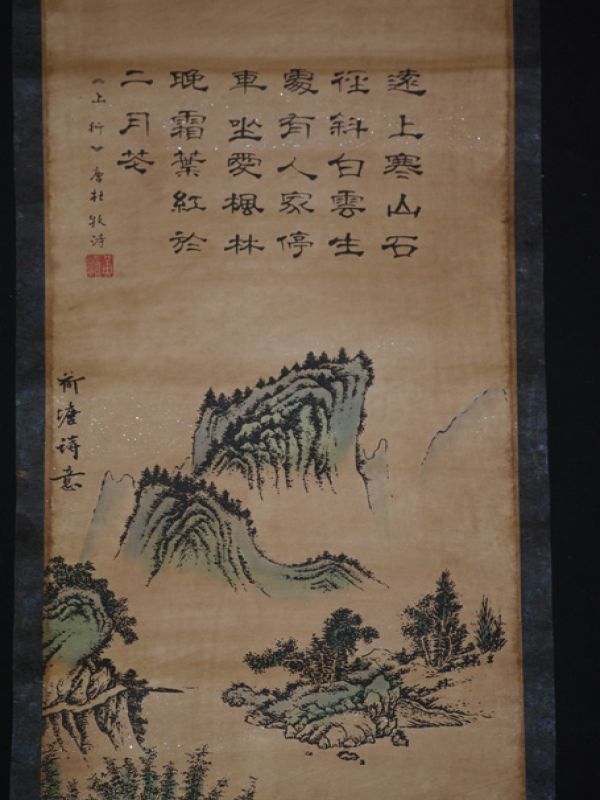 遠上寒山石
径斜白雲生
處有人家停
車坐愛楓林
晚霜葉紅於
二月花
《上行》唐杜牧詩
荷塘詩意